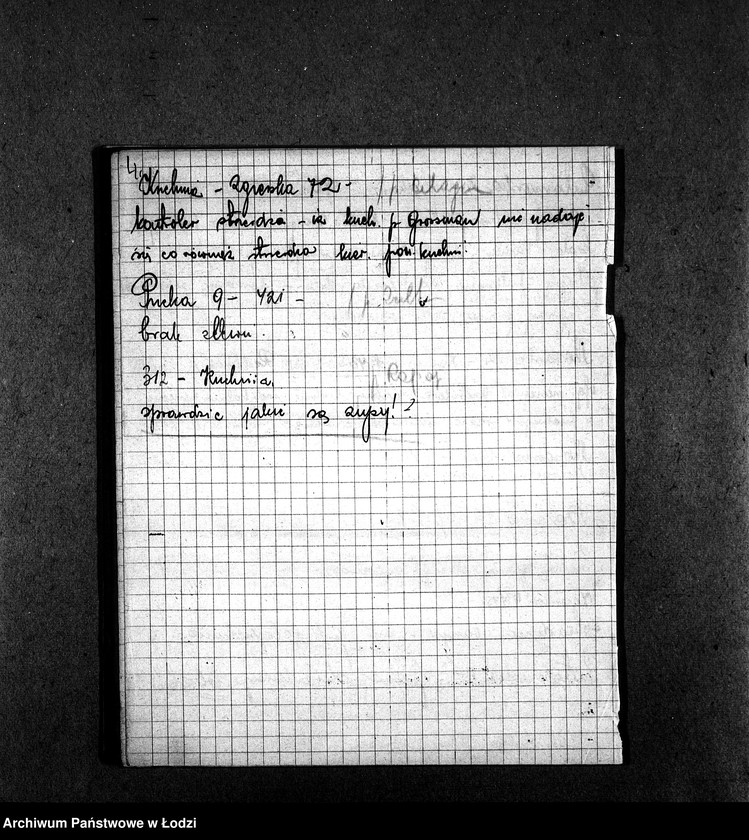 4.
Kuchnia - Zgierska 72 -
kontroler stwierdza - że kuch. p Grosman nie nadaje
się co również stwierdza kier. pow. kuchni.
Pucka 9 - 421 -
brak zlewu.
312 - Kuchnia,
sprawdzić jakie są zupy! ?
Archiwum Państwowe w Łodzi